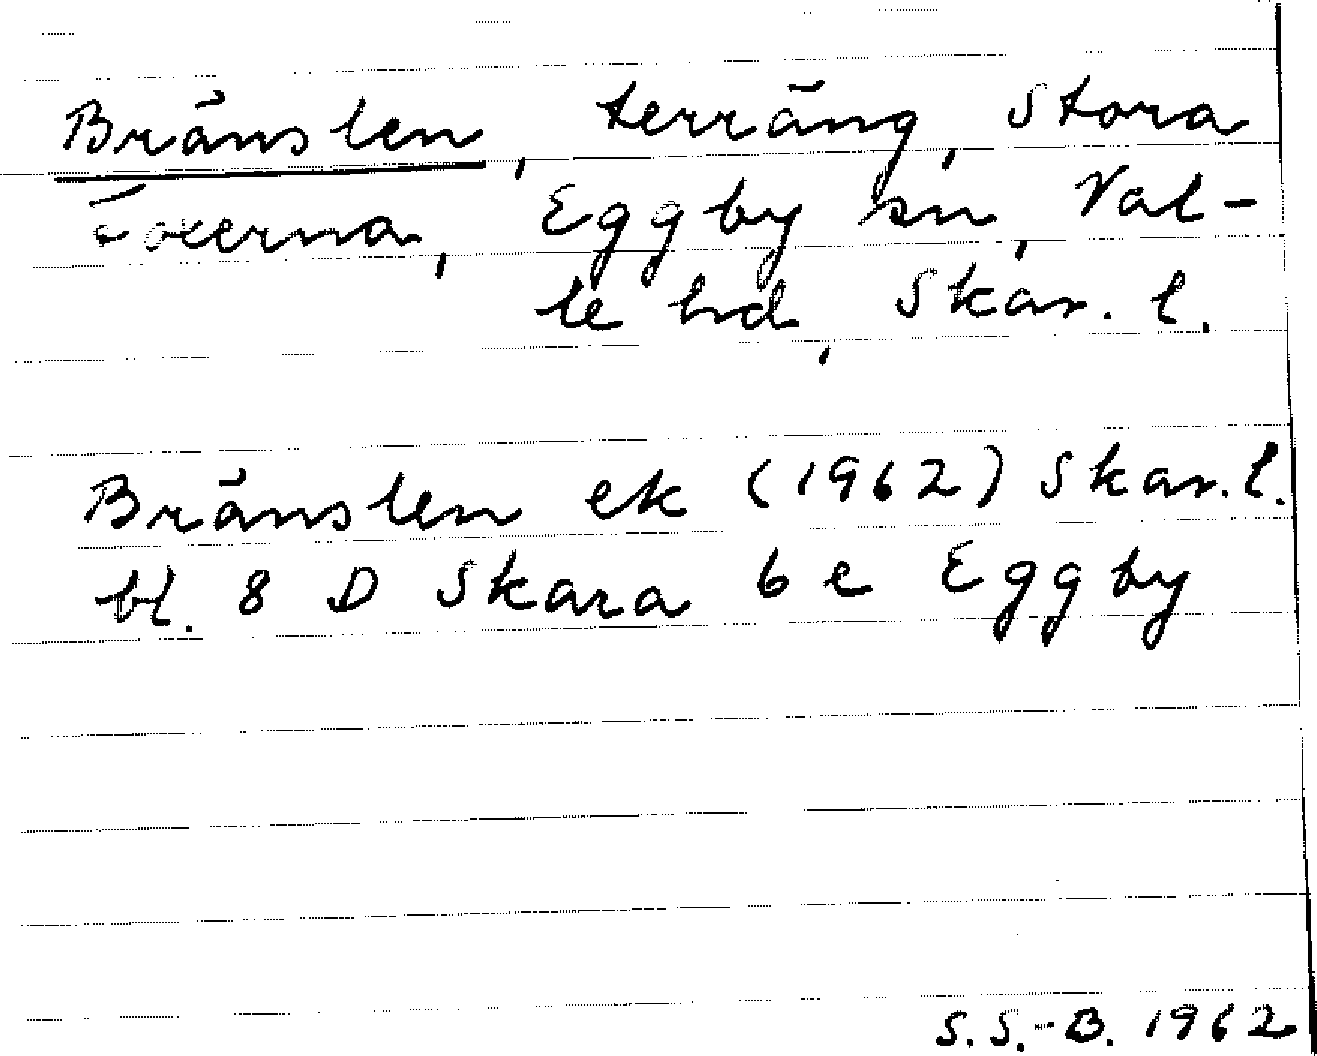 Bränslen, terräng, Stora
Foxerna, Eggby sn, Val-
le hd, Skar. l.
Bränslen ek (1962) Skar. l.
bl. 8 D Skara 6 e Eggby
S. S.-B. 1962